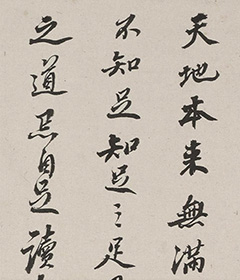 天地本来無滿
不知足知足之足
之道忌自足讀